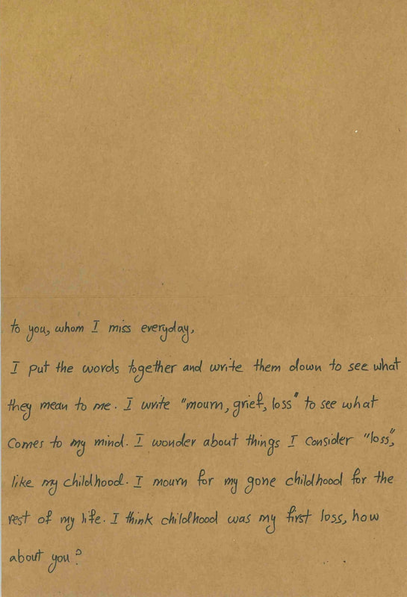 to you, whom I miss everyday,
I put the words together and write them down to see what
they mean to me. I write "mourn, grief, loss" to see what
comes to my mind. I wonder about things I consider "loss",
like my childhood. I mourn for my gone childhood for the
rest of my life. I think childhood was my first loss, how
about you?